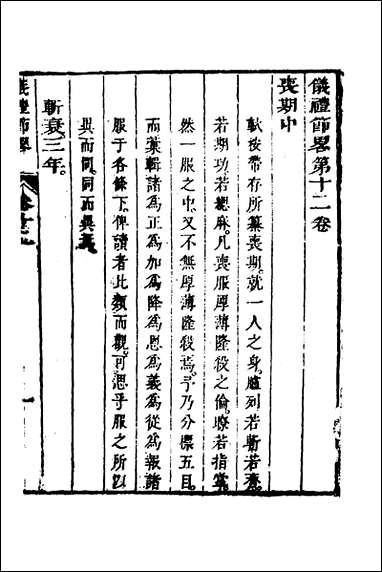 儀禮節畧第十二卷
喪期中
軾按帶存所纂喪期就一人之身臚列若斬若齊
若期功若緦麻凡喪服厚薄隆殺之倫瞭若指掌
然一服之中又不無厚薄隆殺焉予乃分標五目
而彙輯諸為正為加為降為恩為義為從為報諸
服于各條下俾讀者比類而觀可思乎服之所以
異而同同而異
斬衰三年
儀禮節畧